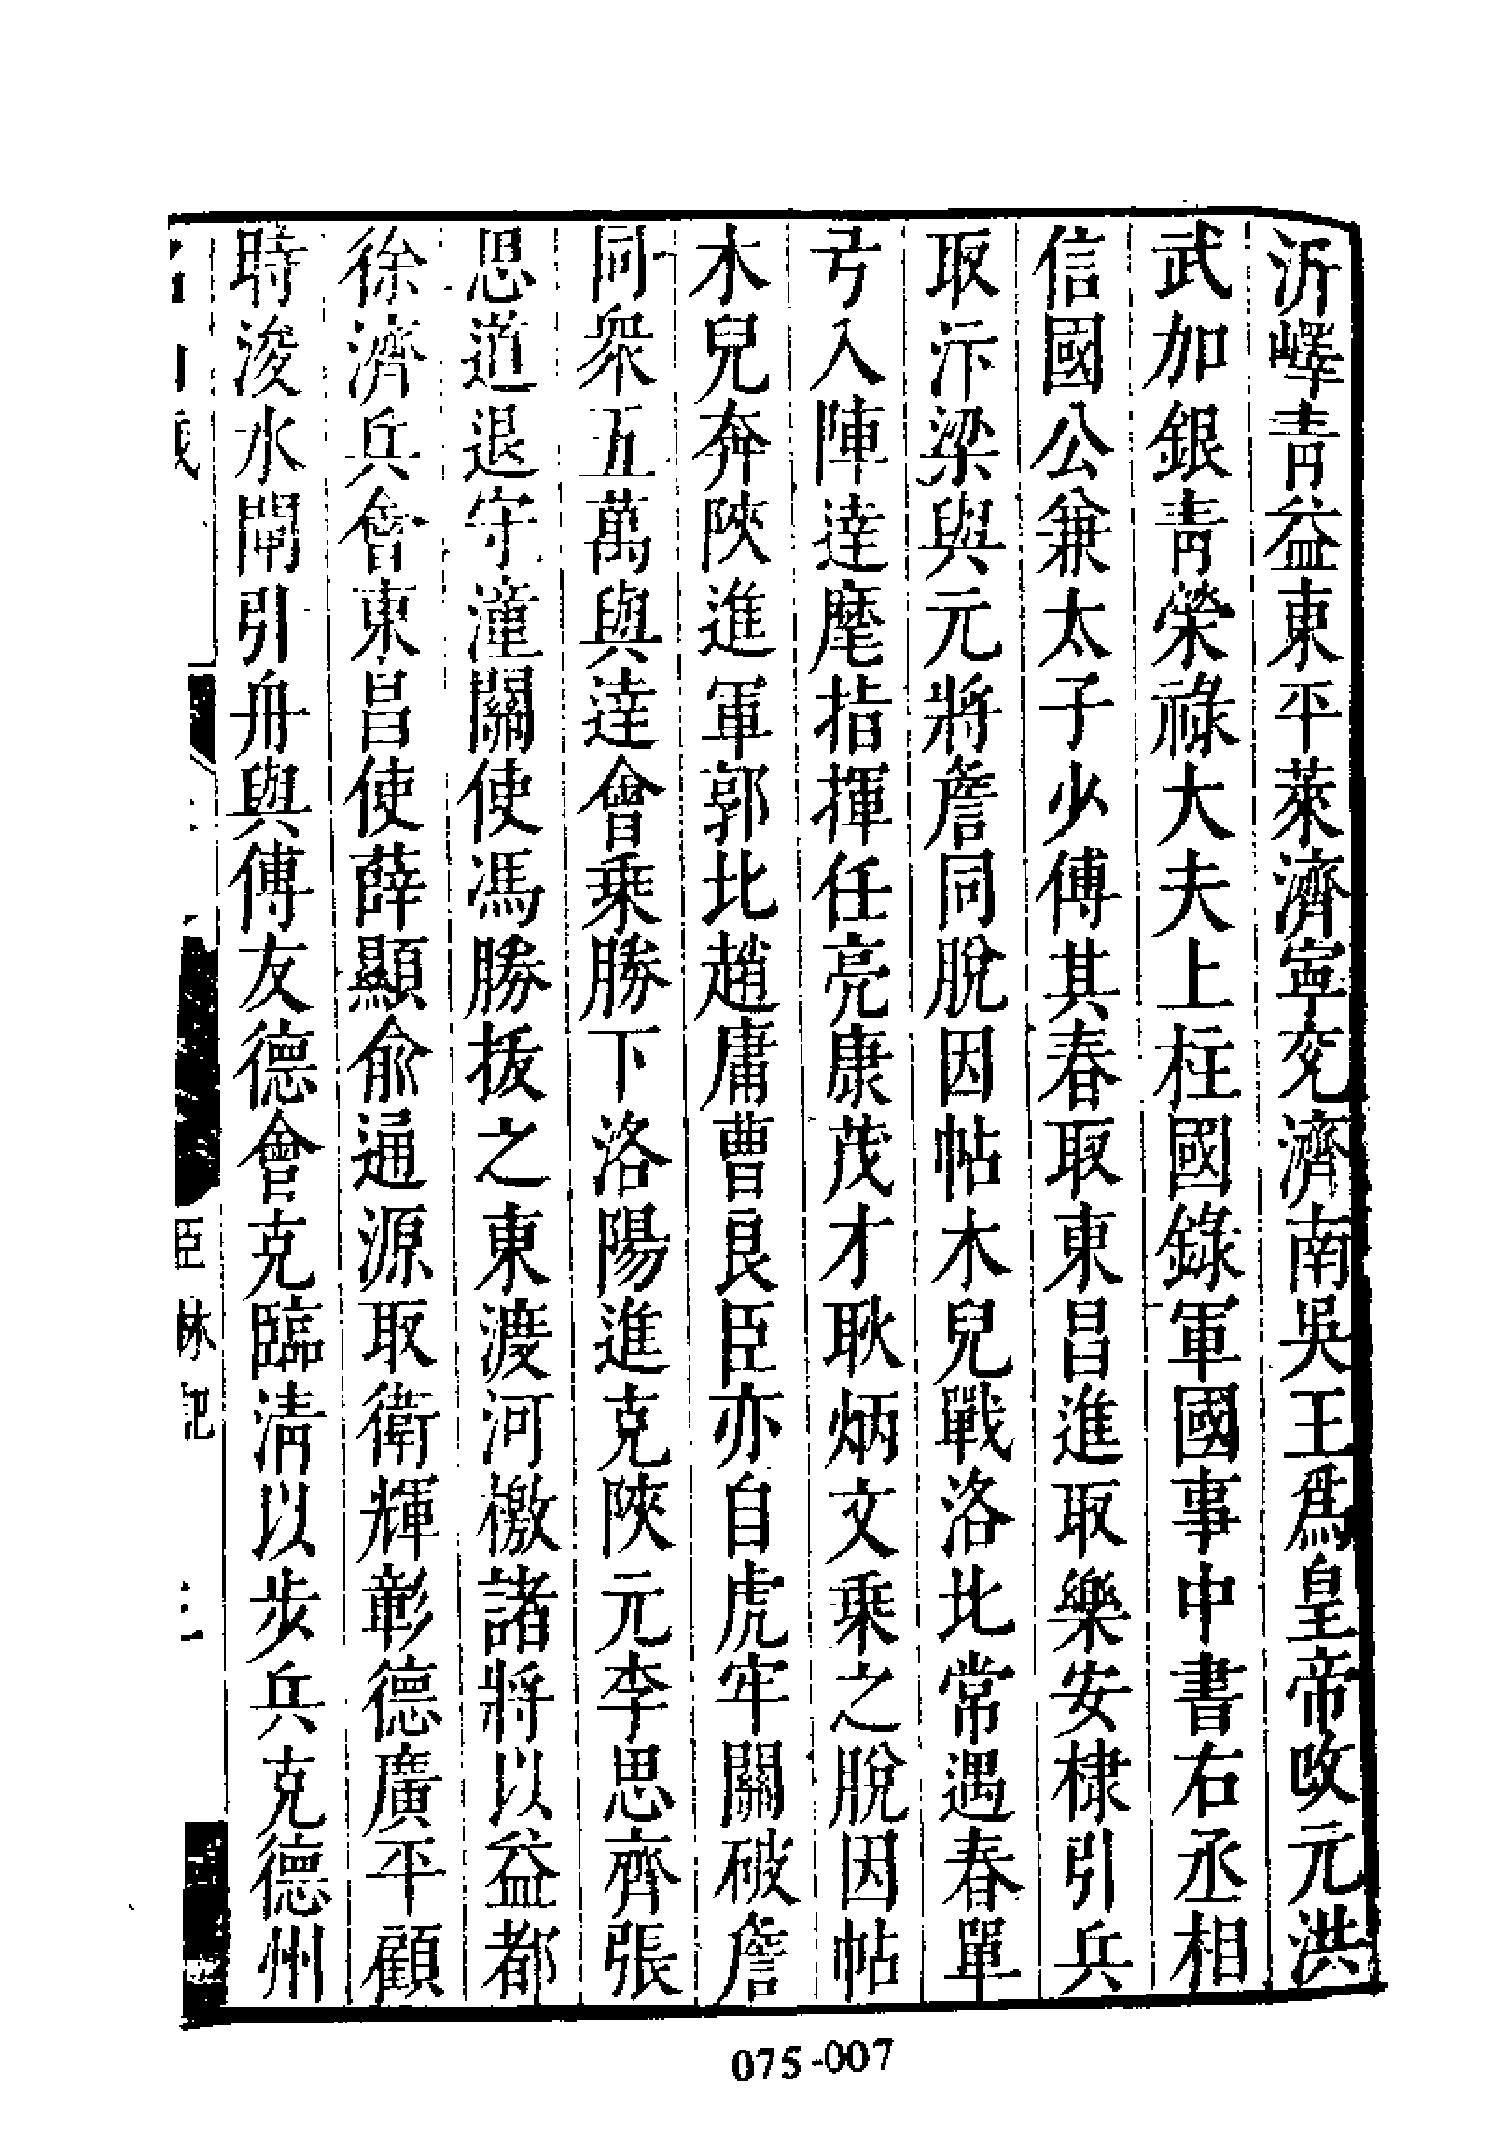 沂嶧青益東平萊濟寧兖濟南吳王爲皇帝改元洪
武加銀青榮祿大夫上柱國錄軍國事中書右丞相
信國公兼太子少傅其春取東昌進取樂安棣引兵
取汴梁與元將詹同脫因帖木兒戰洛北常遇春單
弓入陣達麾指揮任亮康茂才耿炳文乘之脫因帖
木兒奔陝進軍郭北趙庸曹良臣亦自虎牢關破詹
同衆五萬與達會乘勝下洛陽進克陝元李思齊張
思道退守潼關使馮勝拔之東渡河檄諸將以益都
徐濟兵會東昌使薛顯俞通源取衛輝彰德廣平顧
時浚水閘引舟與傅友德會克臨清以步兵克德州
臣林記
075-007